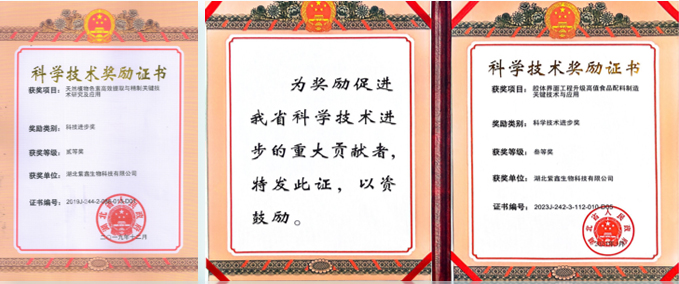 科学技术奖励证书
获奖项目：天然植物色素高效提取与精制关键技
术研究及应用
奖励类别：科技进步奖
获奖等级：贰等奖
获奖单位：湖北紫鑫生物科技有限公司
证书编号：
二〇一九年十二月
为奖励促进
我省科学技术进
步的重大贡献者，
特发此证，以资
鼓励。
科学技术奖励证书
获奖项目：胶体界面工程升级高值食品配料制造
关键技术与应用
奖励类别：科学技术进步奖
获奖等级：叁等奖
获奖单位：湖北紫鑫生物科技有限公司
证书编号：2023J-242-3-112-010-D05
湖北省人民政府